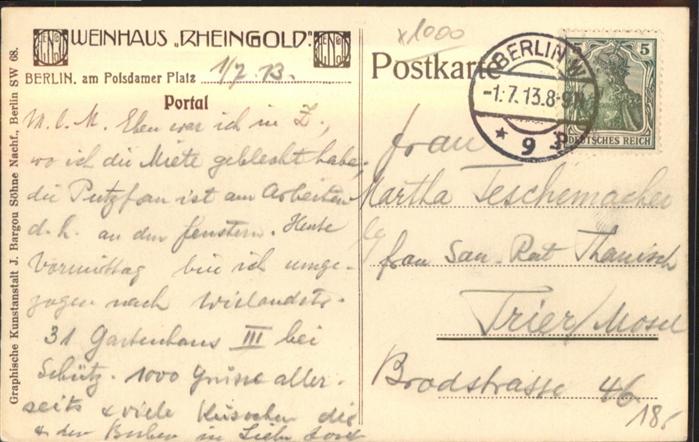 WEINHAUS „RHEINGOLD"
BERLIN, am Potsdamer Platz 1/7.13.
Portal
M. l. M. Eben war ich in Z.,
wo ich die Miete geblecht habe,
die Putzfrau ist am Arbeiten
d.h. an den Fenstern. Heute
Vormittag bin ich umge-
zogen nach Wielandstr.
31 Gartenhaus III bei
Schütz. 1000 Grüsse aller-
seits & viele Küsschen dir
& den Buben in Liebe Josef
Graphische Kunstanstalt J. Bargou Söhne Nachf., Berlin SW 68.
x1000
Postkarte
BERLIN W
-1.7.13.8-9N
* 9
5 5
DEUTSCHES REICH
Frau
Martha Teschemacher
Frau San.-Rat Thanisch
Trier/Mosel
Brodstrasse 46
18.-